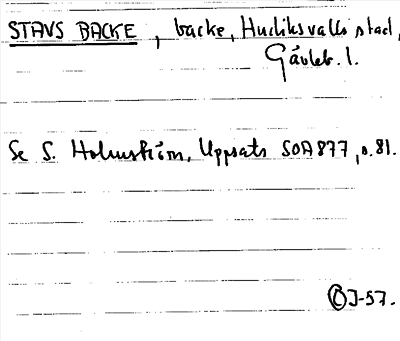 STAVS BACKE, backe, Hudiksvalls stad,
Gävleb. l.
Se S. Holmström, Uppsats SOA 877, s. 81.
CJ-57.